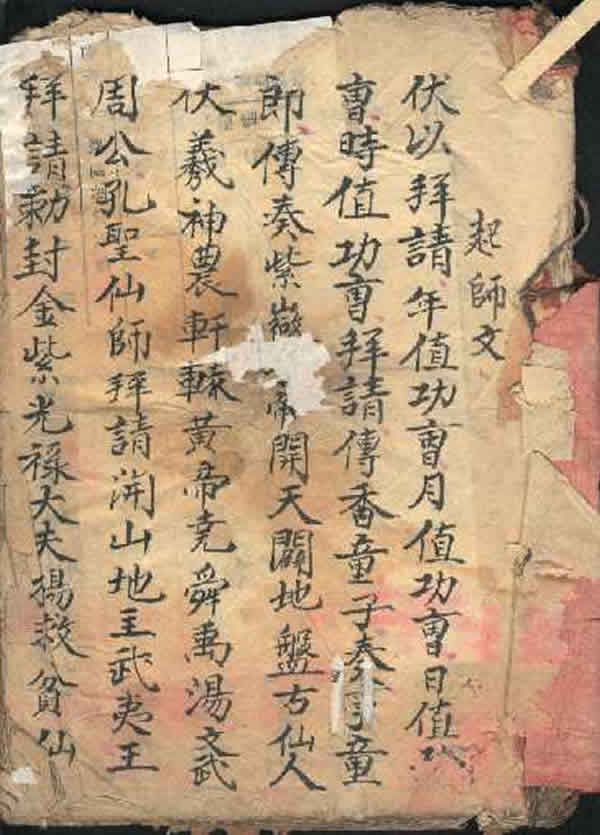 起師文
伏以拜請年值功曹月值功曹日值功
曹時值功曹拜請傳香童子奏事童
郎傳奏紫嶽帝開天闢地盤古仙人
伏羲神農軒轅黃帝堯舜禹湯文武
周公孔聖仙師拜請開山地主武夷王
拜請勅封金紫光祿大夫楊救貧仙